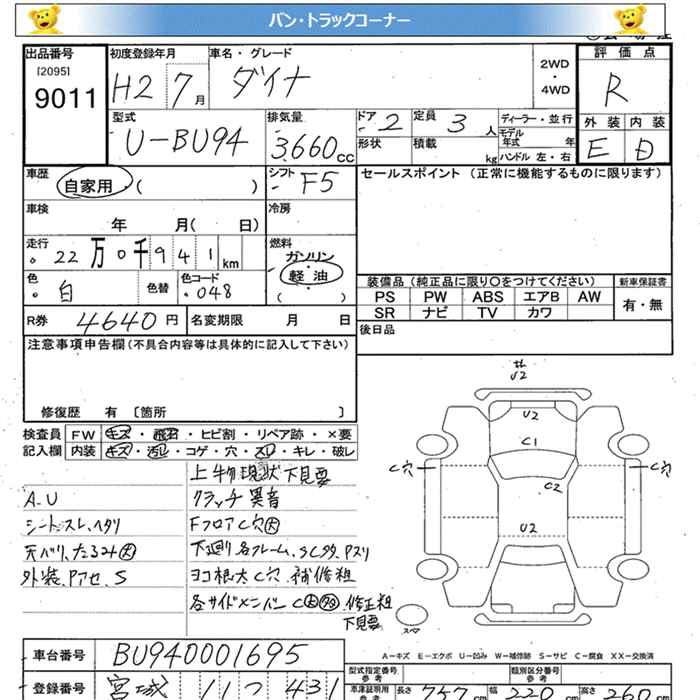 バン・トラックコーナー
出品番号
[2095]
9011
初度登録年月
H2 7月
車名・グレード
ダイナ
2WD
・
4WD
評価点
R
外装 内装
E D
型式
U-BU94
排気量
3660cc
ドア 2
定員 3 人
形状
積載 kg
ディーラー・並行
モデル年式 年
ハンドル 左・右
車歴
自家用 ( )
シフト F5
車検
年 月( 日)
冷房
走行
22万0千941km
燃料
ガソリン
軽・油
( )
色
白
色替
色コード
048
セールスポイント (正常に機能するものに限ります)
装備品(純正品に限り〇をつけてください)
PS PW ABS エアB AW
SR ナビ TV カワ
新車保証書
有・無
R券 4640円
名変期限 月 日
後日品
注意事項申告欄(不具合内容等は具体的に記入して下さい)
修復歴 有 〔箇所 〕
検査員記入欄
FW キズ・飛石・ヒビ割・リペア跡・×要
内装 キズ・汚レ・コゲ・穴・スレ・キレ・破レ
上物現状下見要
A.U
クラッチ異音
シートスレ、ヘタリ
Fフロア C穴大
天バリ、たるみ大
下廻り各フレーム、SC多、Pスリ
外装、Pアセ、S
ヨコ根太C穴、補修粗
各サイドメンバーC大多、修正粗
下見要
U2
U2
C1
C穴
C穴
C2
U2
スペア
A-キズ E-エクボ U-凹み W-補修跡 S-サビ C-腐食 XX-交換済
車台番号
BU940001695
型式指定番号
参考
類別区分番号
参考
登録番号
宮城 11つ 431
車庫証明用
参考
長さ 757cm 幅 220cm 高さ 260cm